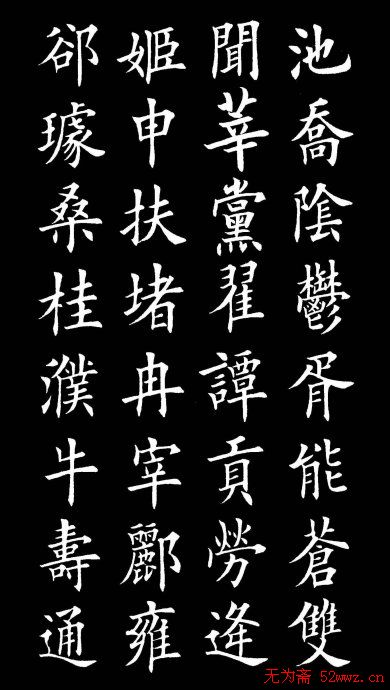 池喬陰鬱胥能蒼雙
聞莘黨翟譚貢勞逄
姬申扶堵冉宰酈雍
郤璩桑桂濮牛壽通
无为斋 52wwz.cn